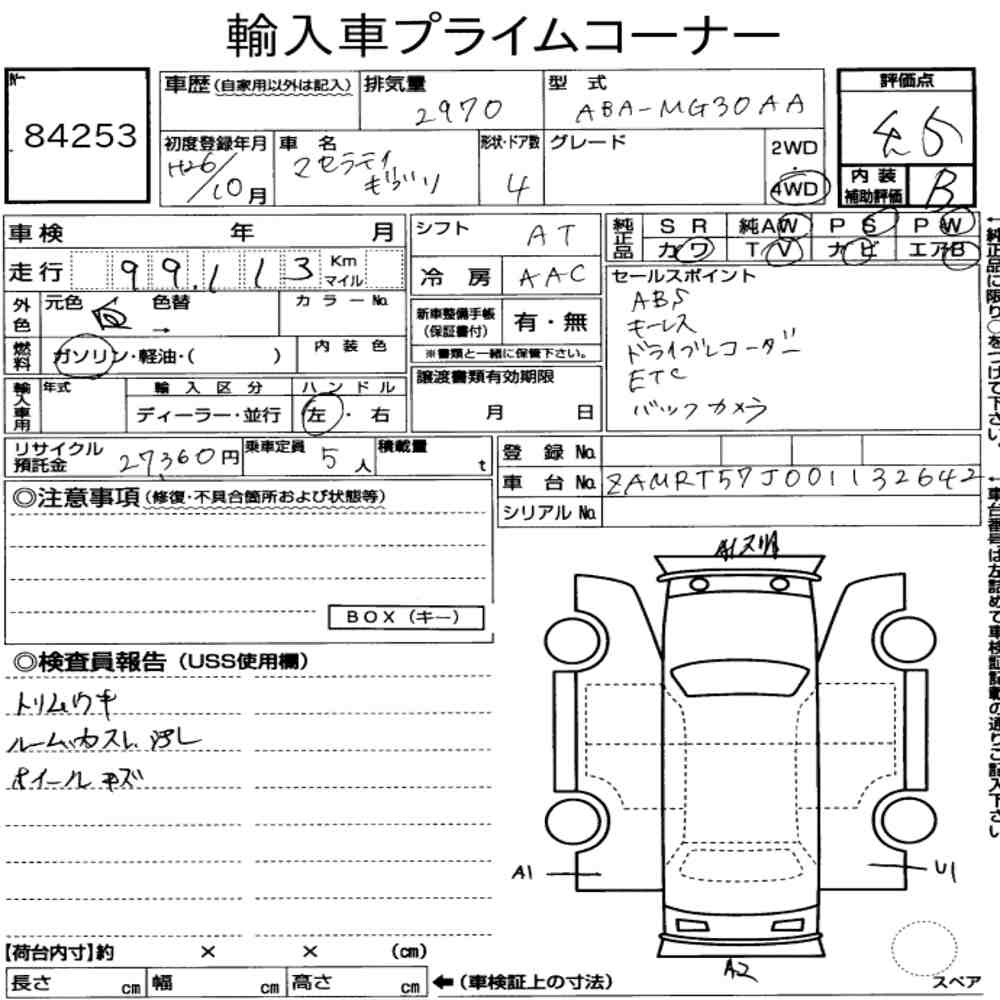 輸入車プライムコーナー
84253
車歴(自家用以外は記入) 排気量 2970 型式 ABA-MG30AA 評価点
初度登録年月 H26/10月 車名 マセラティ ギブリ 形状・ドア数 4 グレード 2WD・4WD
内装補助評価 B
車検 年 月 シフト AT 純正品 SR 純AW PS PW
カワ TV ナビ エアB
走行 99,113 Km マイル 冷房 AAC
セールスポイント
ABS
キーレス
ドライブレコーダー
ETC
バックカメラ
外色 元色 色替 → カラーNo. 新車整備手帳(保証書付) 有・無
※書類と一緒に保管下さい。
燃料 ガソリン・軽油・( ) 内装色
譲渡書類有効期限
月 日
輸入車用 年式 輸入区分 ハンドル
ディーラー・並行 左・右
リサイクル預託金 27,360円 乗車定員 5人 積載量 t
登録No.
車台No. ZAMRT57J001132642
シリアルNo.
←純正品に限り○をつけて下さい。
←車台番号は左詰めで車検証記載の通りご記入下さい
◎注意事項(修復・不具合箇所および状態等)
BOX(キー)
◎検査員報告(USS使用欄)
トリムウキ
ルームカスレ、汚レ
ホイールキズ
A1
U1
A2
スペア
【荷台内寸】約 × × (cm)
長さ cm 幅 cm 高さ cm ←(車検証上の寸法)